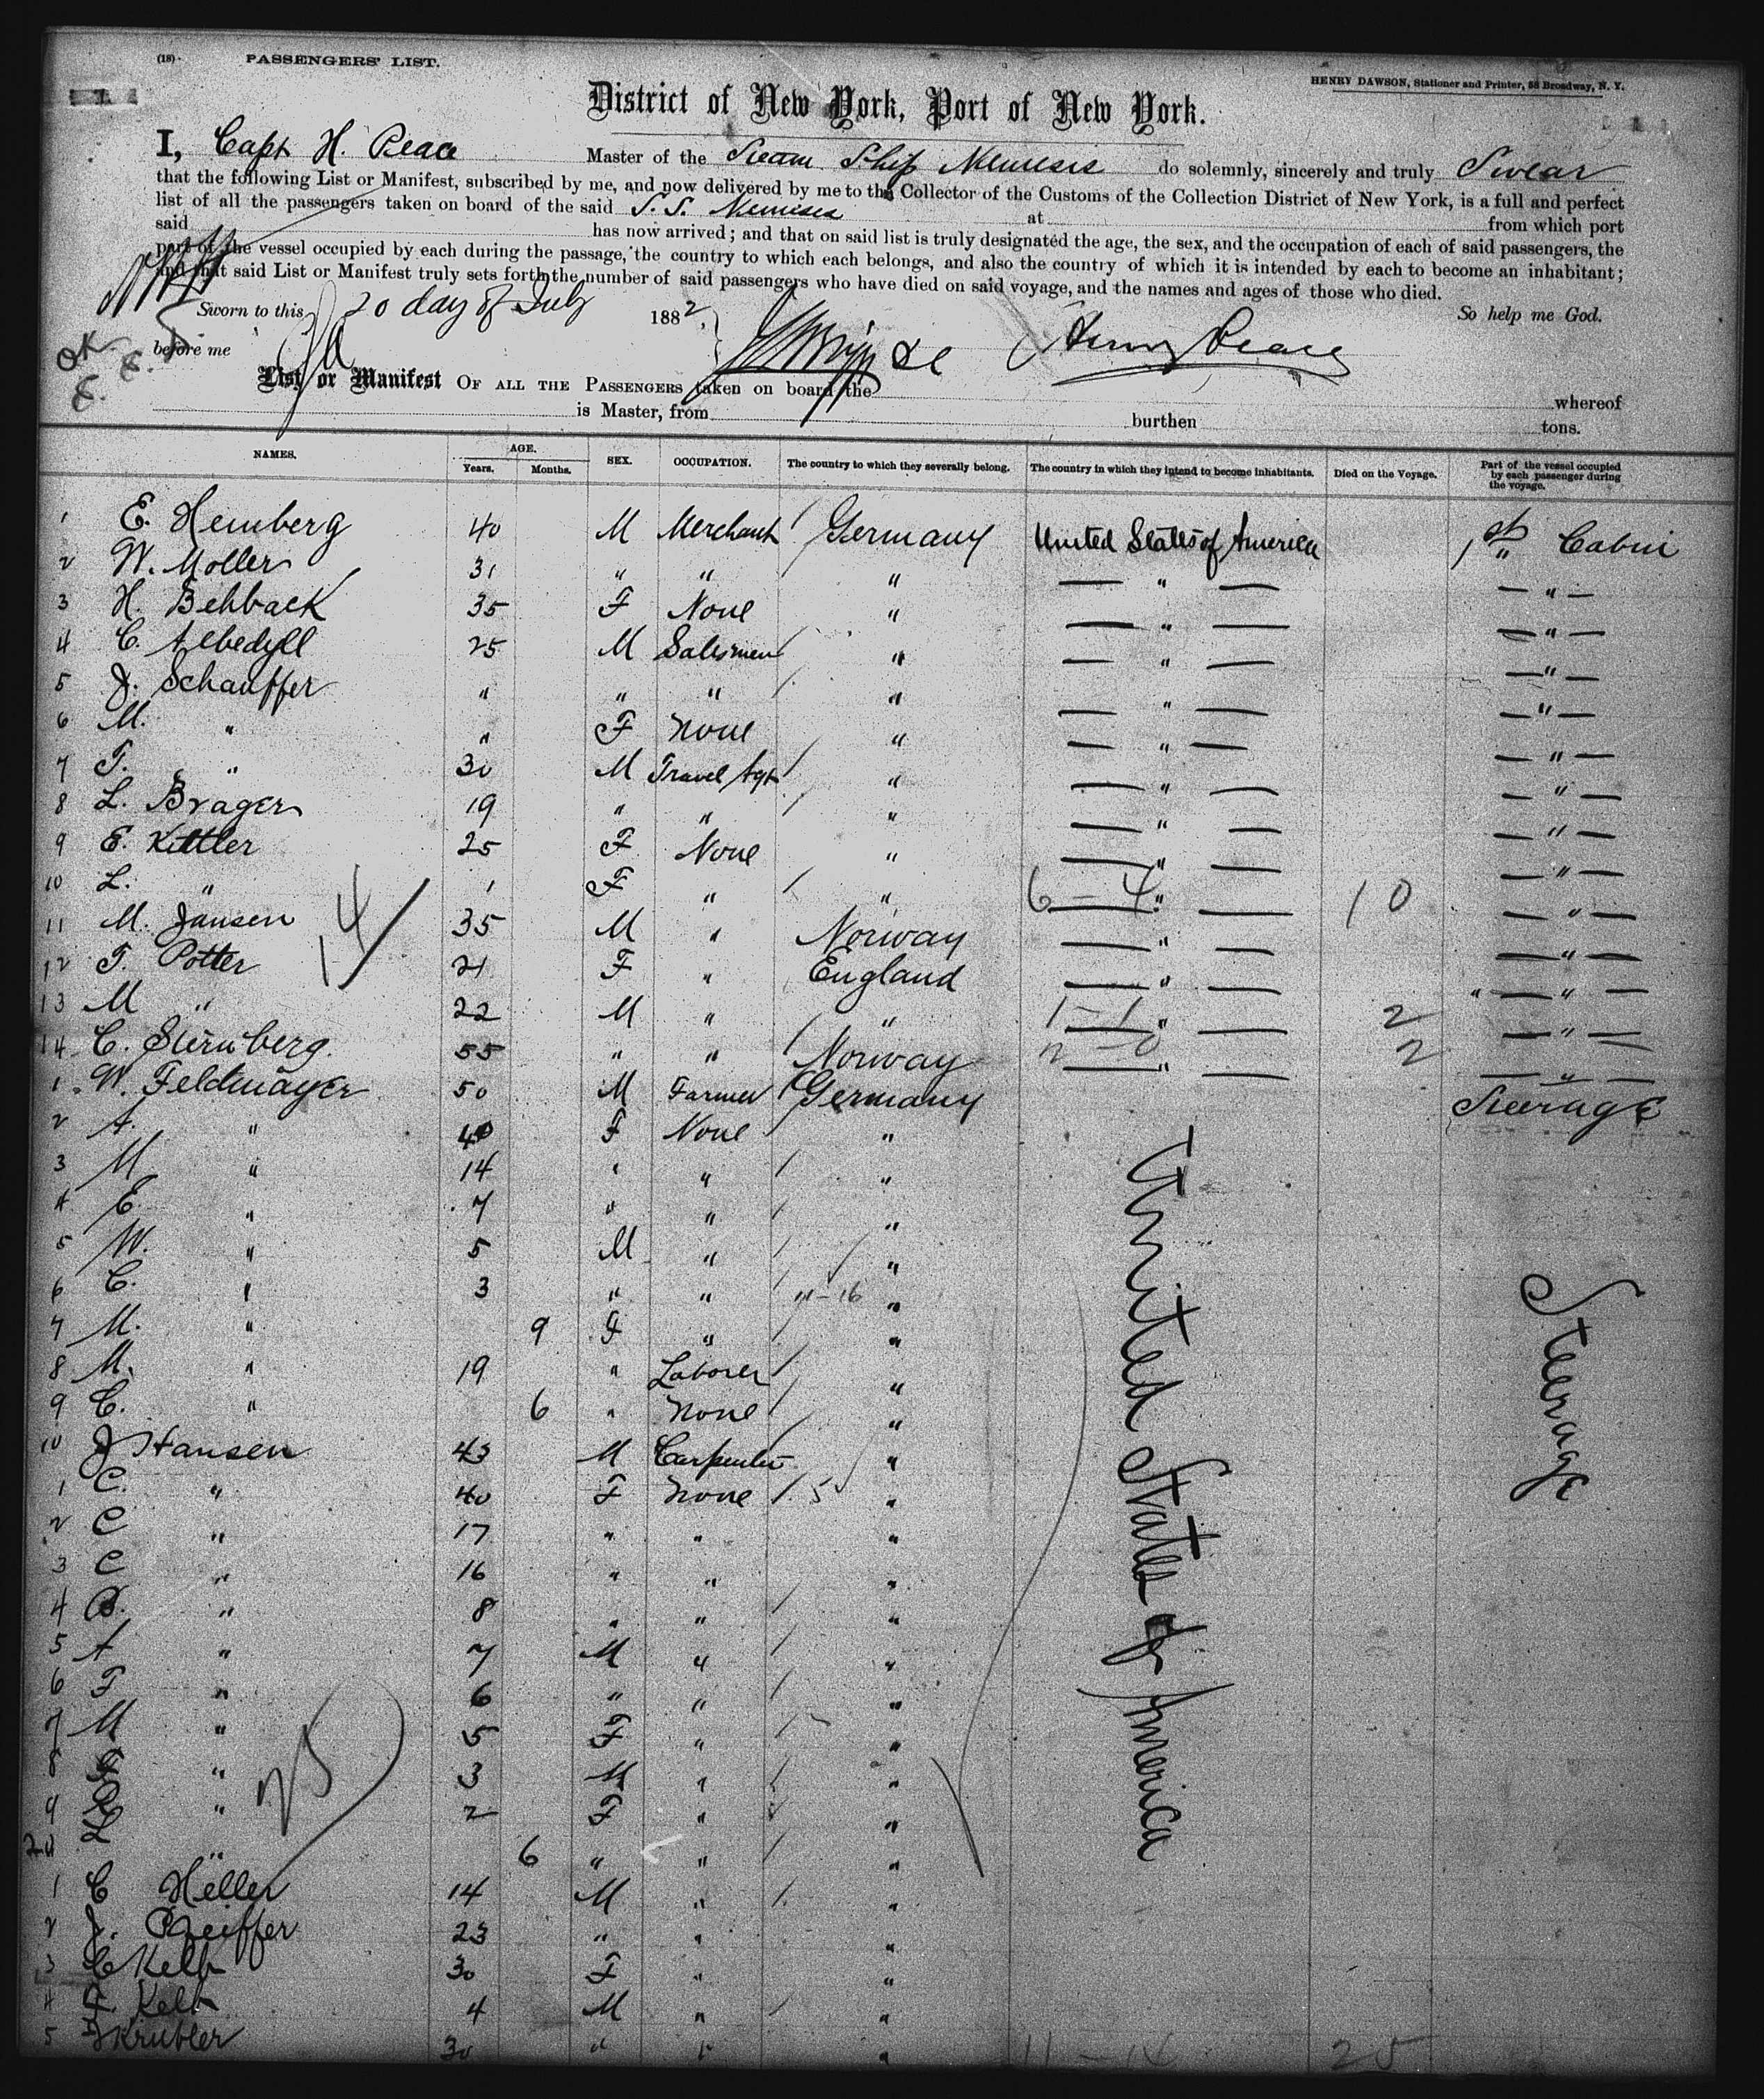 (18) PASSENGERS' LIST.
HENRY DAWSON, Stationer and Printer, 58 Broadway, N. Y.
District of New York, Port of New York.
I, Capt H. Peace Master of the Steam Ship Nemesis do solemnly, sincerely and truly Swear
that the following List or Manifest, subscribed by me, and now delivered by me to the Collector of the Customs of the Collection District of New York, is a full and perfect
list of all the passengers taken on board of the said S.S. Nemesis at from which port
said has now arrived; and that on said list is truly designated the age, the sex, and the occupation of each of said passengers, the
part of the vessel occupied by each during the passage, the country to which each belongs, and also the country of which it is intended by each to become an inhabitant;
and that said List or Manifest truly sets forth the number of said passengers who have died on said voyage, and the names and ages of those who died.
Sworn to this 20 day of July 1882, So help me God.
before me Henry Peace
OK
List or Manifest OF ALL THE PASSENGERS taken on board the whereof
is Master, from burthen tons.
NAMES. AGE. Years. Months. SEX. OCCUPATION. The country to which they severally belong. The country in which they intend to become inhabitants. Died on the Voyage. Part of the vessel occupied by each passenger during the voyage.
1 E. Hemberg 40 M Merchant Germany United States of America 1st Cabin
2 W. Moller 31 " " " " "
3 H. Behback 35 F None " " "
4 C. Albedyll 25 M Salesmen " " "
5 J. Schauffer " " " " " "
6 M. " " F None " " "
7 F. " 30 M Travel Agt " " "
8 L. Brager 19 " " " " "
9 E. Kittler 25 F None " " "
10 L. " 1 F " " 6-4 " 10 "
11 M. Jansen 35 M " Norway " "
12 F. Potter 21 F " England " "
13 M " 22 M " " 1-1 " 2 "
14 C. Sternberg 55 " " Norway 2-0 " 2 "
14
1 W. Feldmayer 50 M Farmer Germany Steerage
2 A. " 40 F None "
3 M " 14 " " "
4 E. " 7 " " "
5 W. " 5 M " "
6 C. " 3 " " "
7 M. " 9 F " "
8 M. " 19 " Laborer "
9 C. " 6 " None "
10 J Hansen 43 M Carpenter "
1 C. " 40 F None "
2 C " 17 " " "
3 C " 16 " " "
4 B. " 8 " " "
5 A " 7 M " "
6 F " 6 " " "
7 M " 5 F " "
8 F " 3 M " "
9 " 2 F " "
20 L " 6 " " "
1 C Heller 14 M " "
2 J. Pfeiffer 23 " " "
3 C Kelb 30 F " "
4 Kelb 4 M " "
5 Krubler 30 " " " 11-14 25
25
United States of America
Steerage